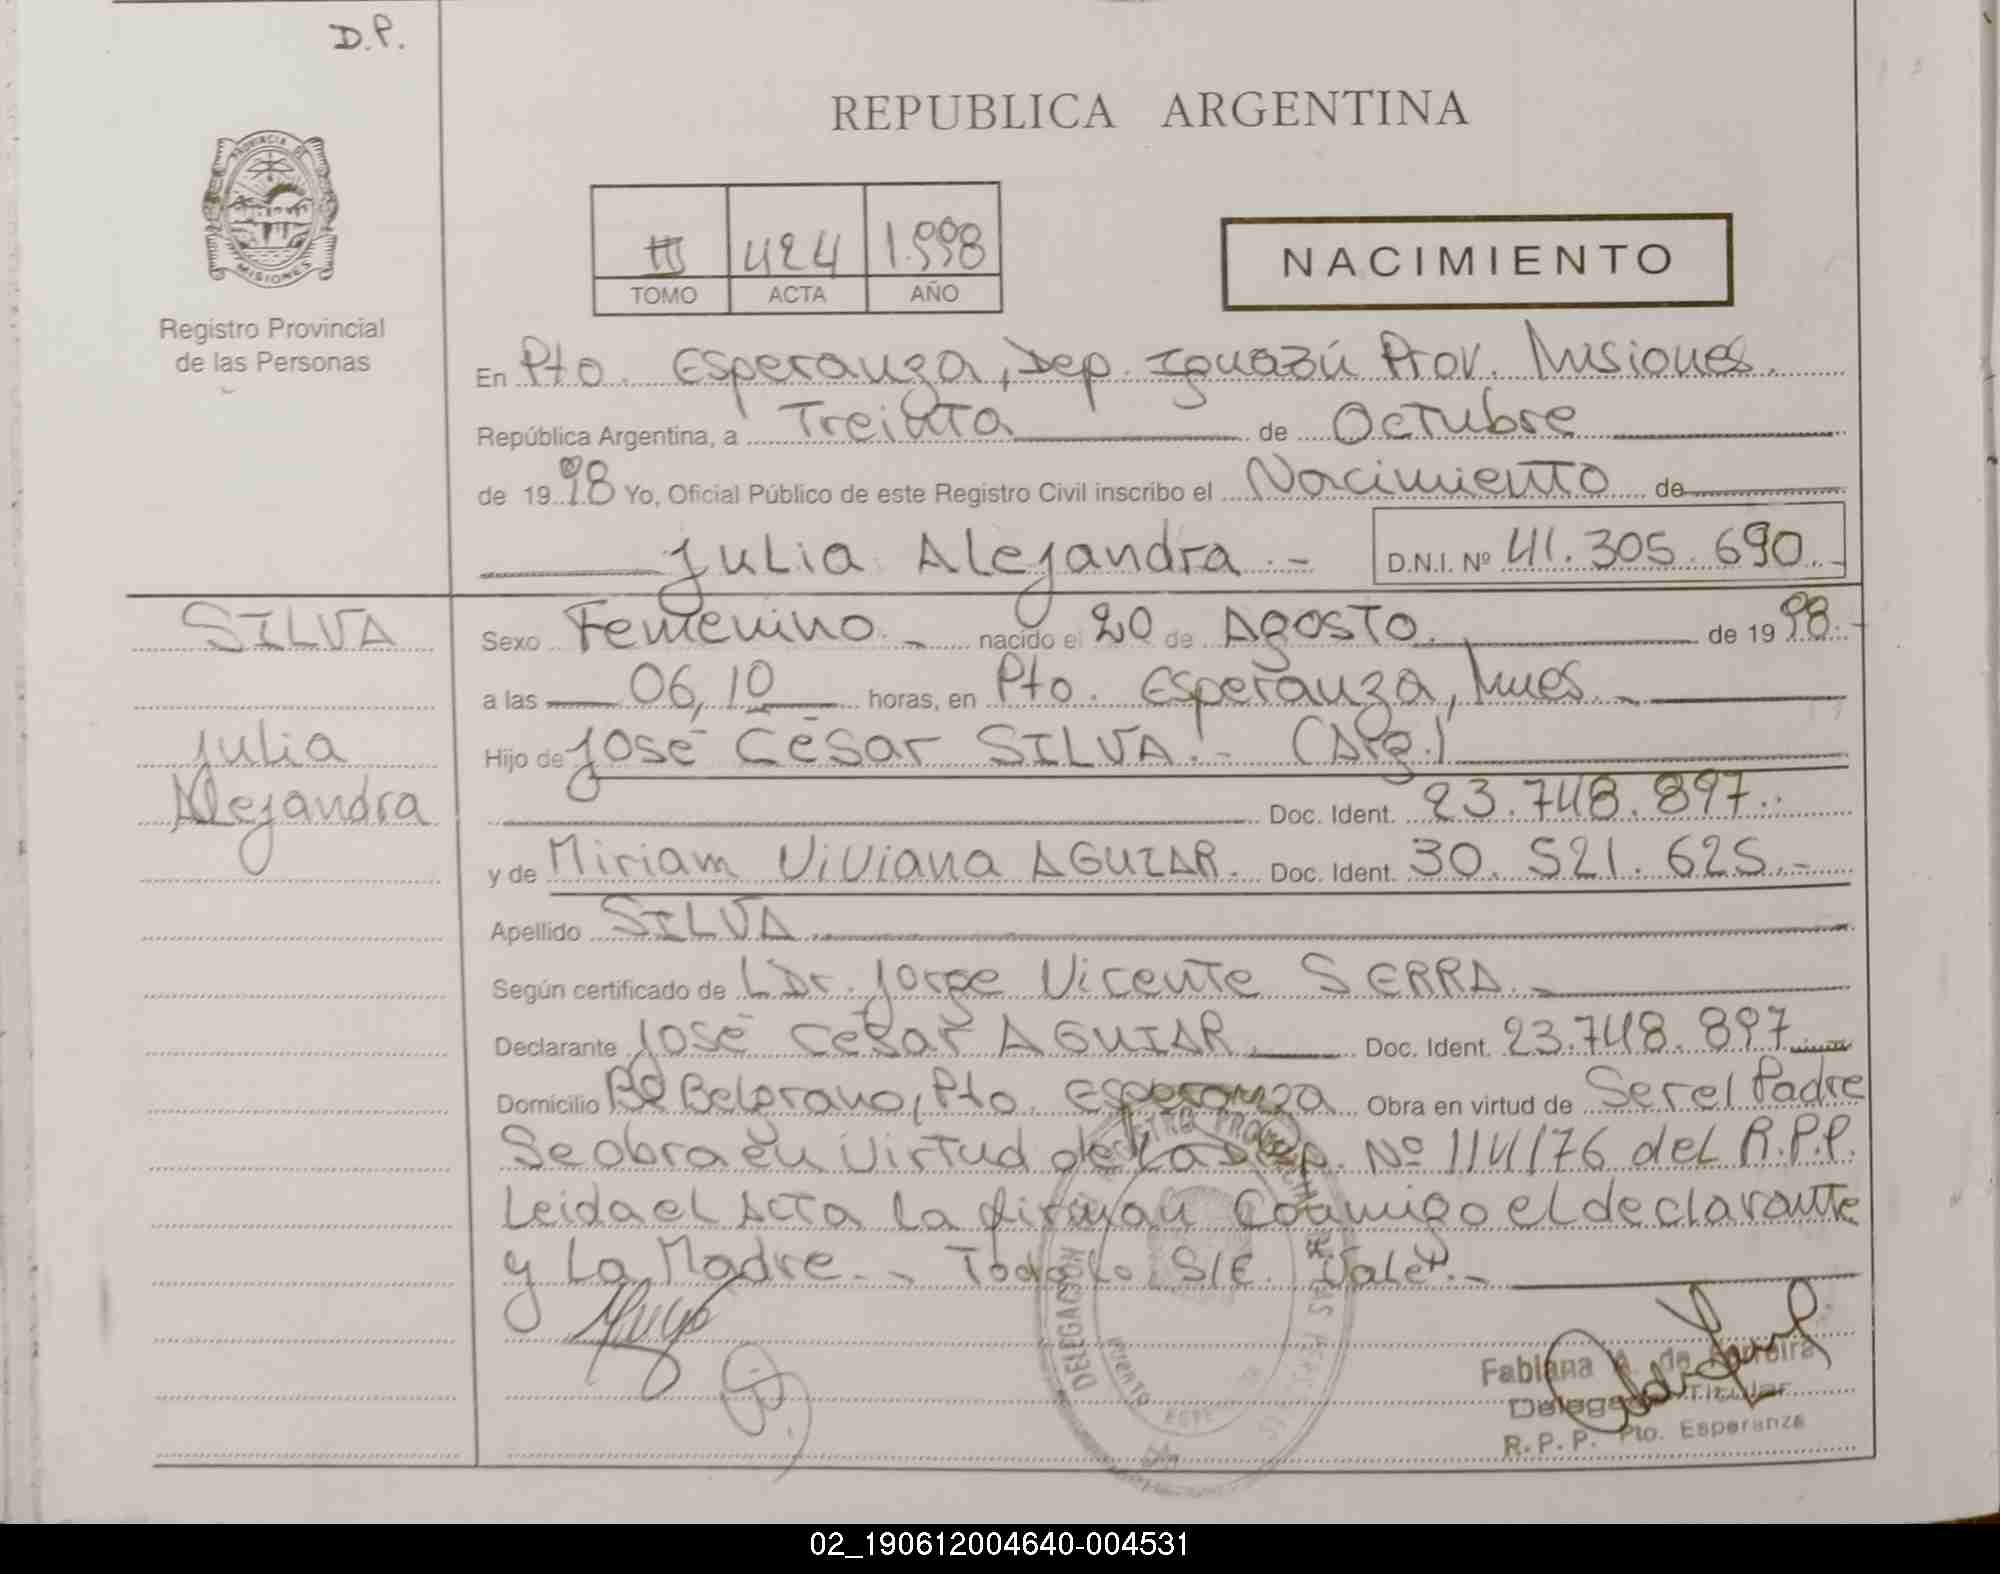 D.P.
REPUBLICA ARGENTINA
PROVINCIA DE
MISIONES
III 424 1.998
TOMO ACTA AÑO
NACIMIENTO
Registro Provincial
de las Personas
En Pto. Esperanza, Dep. Iguazú Prov. Misiones.
República Argentina, a Treinta de Octubre
de 1998 Yo, Oficial Público de este Registro Civil inscribo el Nacimiento de
Julia Alejandra.- D.N.I. Nº 41.305.690.-
SILVA
Julia
Alejandra
Sexo Femenino.- nacido el 20 de Agosto. de 1998.-
a las 06,10 horas, en Pto. Esperanza, Mnes.-
Hijo de José César SILVA.- (Arg.)
Doc. Ident. 23.748.897.
y de Miriam Viviana AGUIAR. Doc. Ident. 30.521.625.-
Apellido SILVA
Según certificado de Dr. Jorge Vicente SERRA.-
Declarante José César AGUIAR Doc. Ident. 23.748.897
Domicilio Bº Belgrano, Pto. Esperanza Obra en virtud de Ser el Padre
Se obra en virtud de la Disp. Nº 114/76 del R.P.P.
Leida el Acta la firman Conmigo el declarante
y La Madre.- Todo lo S/E. Vale.-
DELEGACION
PUERTO
Fabiana A. de Ferreira
Delegada Titular
R.P.P. Pto. Esperanza
02_190612004640-004531